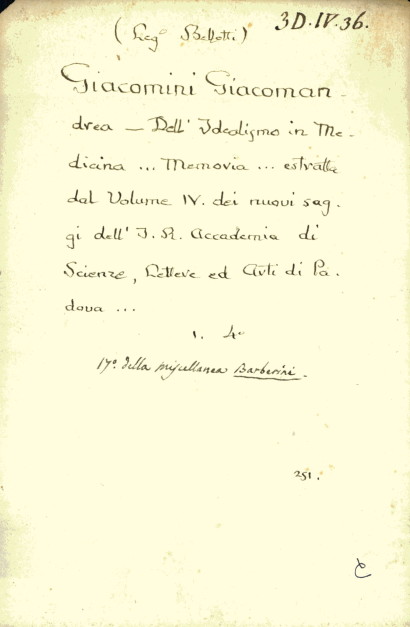 3D.IV.36.
(Leg.º Bellotti)
Giacomini Giacoman-
drea — Dell' Idealismo in Me-
dicina ... Memoria ... estratta
dal Volume IV. dei nuovi sag-
gi dell' I. R. Accademia di
Scienze, Lettere ed Arti di Pa-
dova ...
1. 4º
17º. della miscellanea Barberini.
251.